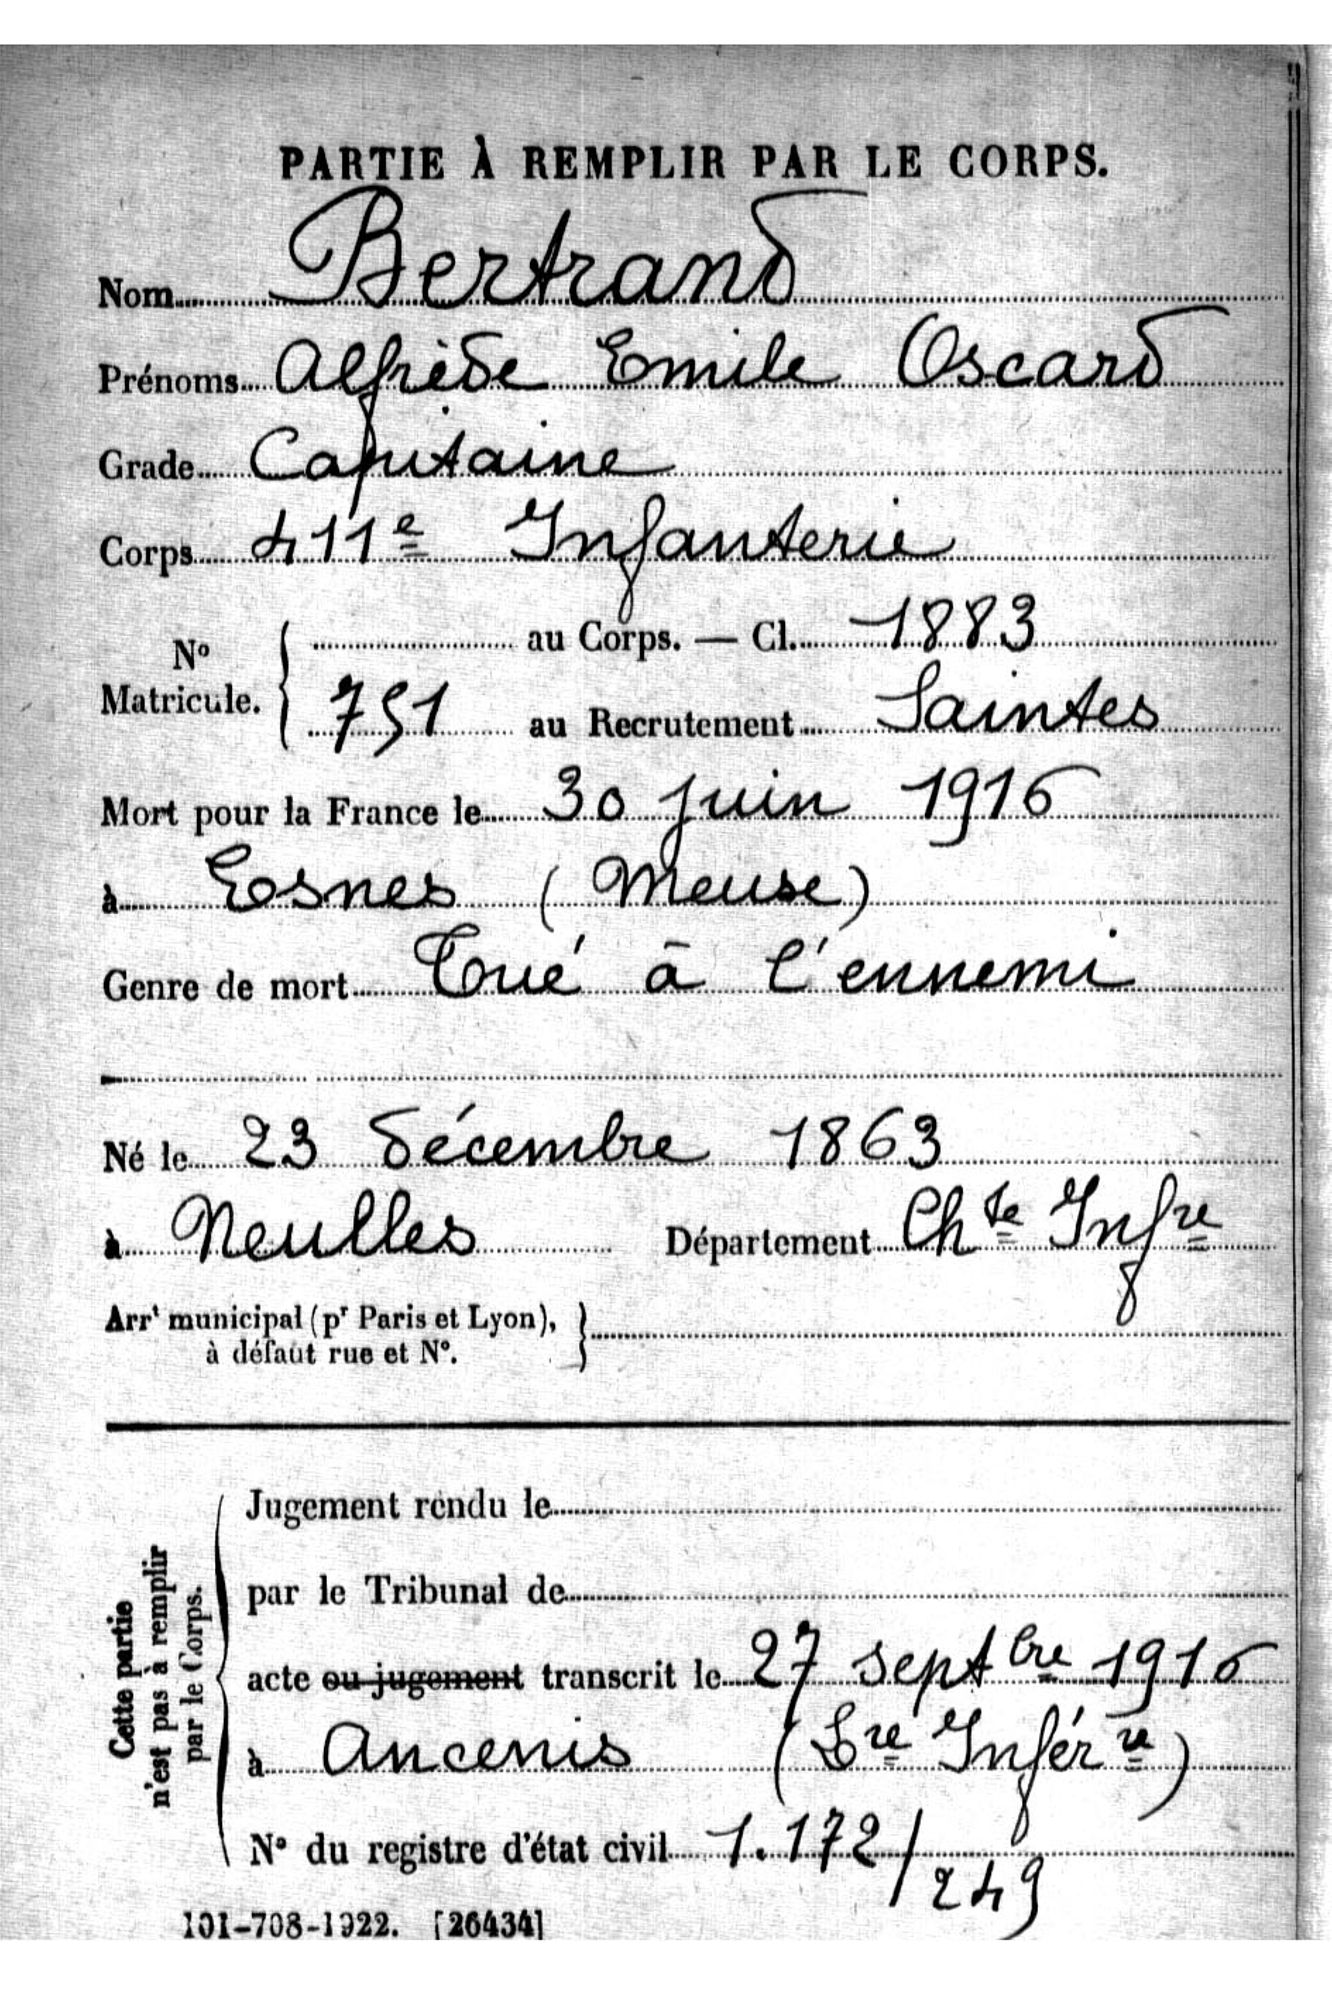 PARTIE À REMPLIR PAR LE CORPS.
Nom Bertrand
Prénoms Alfrède Emile Oscard
Grade Capitaine
Corps 411e Infanterie
No Matricule. { au Corps. — Cl. 1883
751 au Recrutement Saintes
Mort pour la France le 30 juin 1916
à Esnes (Meuse)
Genre de mort Tué à l'ennemi
Né le 23 décembre 1863
à Neulles Département Chte Infre
Arrt municipal (pr Paris et Lyon), }
à défaut rue et N°.
Cette partie
n'est pas à remplir
par le Corps.
Jugement rendu le
par le Tribunal de
acte ou jugement transcrit le 27 septbre 1916
à Ancenis (Lre Inférre)
N° du registre d'état civil 1.172/249
101-708-1922. [26434]